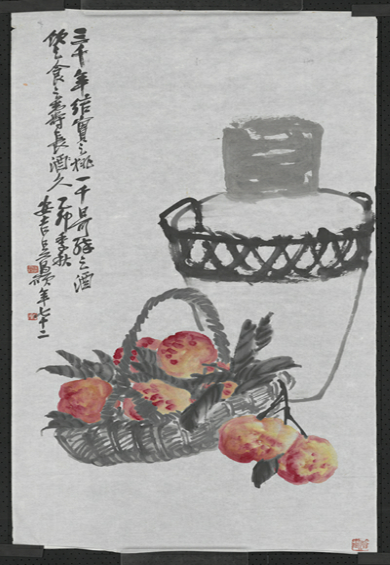 三千年結實之桃一千日醉之酒
飲之食之壽長酒久
乙卯季秋
安吉吳昌碩年七十二